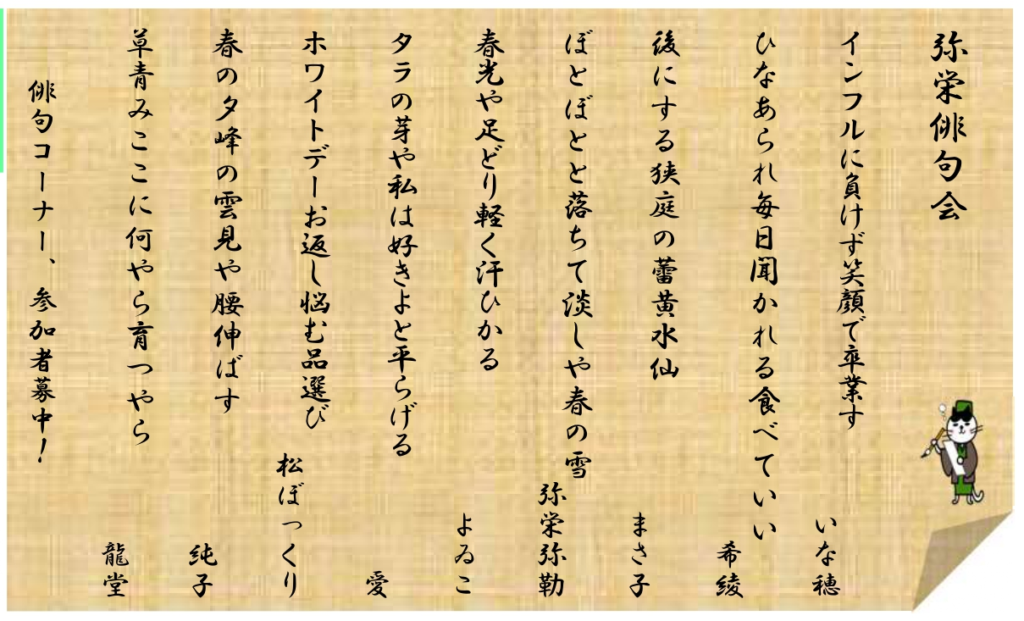 弥栄俳句会
インフルに負けず笑顔で卒業す
いな穂
ひなあられ毎日聞かれる食べていい
希綾
後にする狭庭の蕾黄水仙
まさ子
ぼとぼとと落ちて淡しや春の雪
弥栄弥勒
春光や足どり軽く汗ひかる
よゐこ
タラの芽や私は好きよと平らげる
愛
ホワイトデーお返し悩む品選び
松ぼっくり
春の夕峰の雲見や腰伸ばす
純子
草青みここに何やら育つやら
龍堂
俳句コーナー、参加者募中！